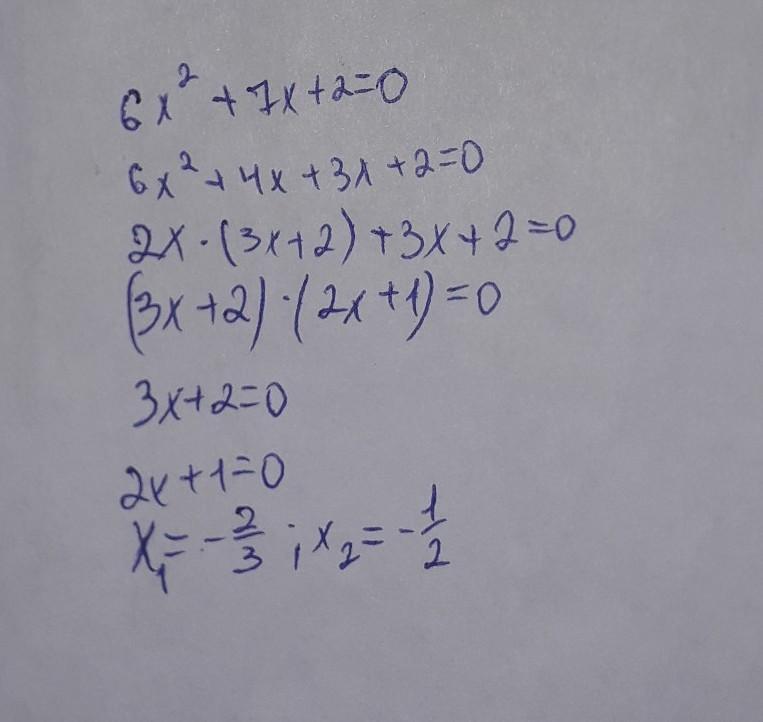 6x² + 7x + 2 = 0
6x² + 4x + 3x + 2 = 0
2x · (3x + 2) + 3x + 2 = 0
(3x + 2) · (2x + 1) = 0
3x + 2 = 0
2x + 1 = 0
x₁ = -2/3 ; x₂ = -1/2